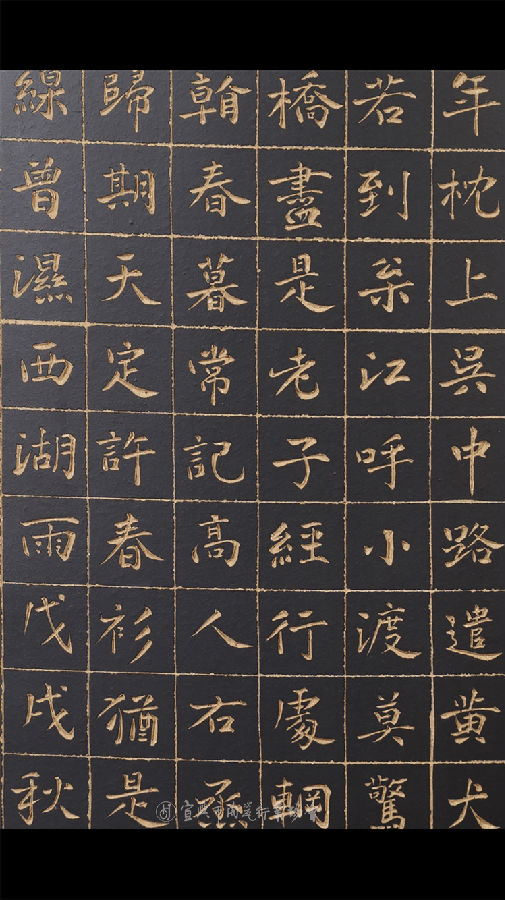 年枕上吳中路遣黄犬
若到枀江呼小渡莫驚
橋盡是老子經行處輞
看春暮常記高人右丞
歸期天定許春衫猶是
線曾濕西湖雨戊戌秋